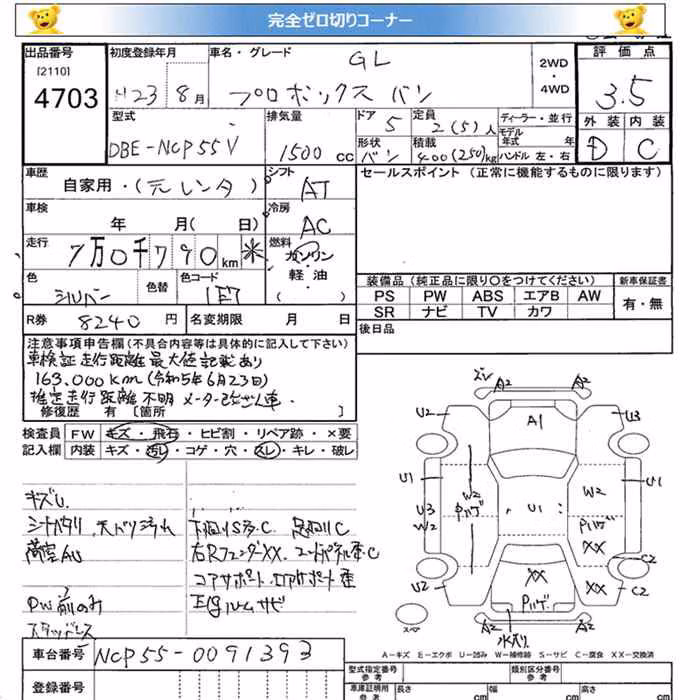 完全ゼロ切りコーナー
出品番号
[2110]
4703
初度登録年月
H23 8月
車名・グレード
GL
プロボックス バン
2WD
・
4WD
評価点
3.5
外装 内装
D C
型式
DBE-NCP55V
排気量
1500 cc
ドア
5
定員
2(5)人
形状
バン
積載
400(250)kg
ディーラー・並行
モデル年式 年
ハンドル 左・右
車歴
自家用・(元レンタ)
シフト
AT
車検
年 月( 日)
冷房
AC
走行
7万0千790km *
燃料
ガソリン
軽油
( )
色
シルバー
色替
色コード
1E7
R券 8240円
名変期限 月 日
セールスポイント(正常に機能するものに限ります)
装備品(純正品に限り○をつけてください)
PS PW ABS エアB AW
SR ナビ TV カワ
新車保証書
有・無
後日品
注意事項申告欄(不具合内容等は具体的に記入して下さい)
車検証走行距離最大値記載あり
163,000km(令和5年6月23日)
推定走行距離不明 メーター改ざん車.
修復歴 有 [箇所 ]
検査員 FW キズ・飛石・ヒビ割・リペア跡・×要
記入欄 内装 キズ・汚レ・コゲ・穴・スレ・キレ・破レ
キズU
シートヘタリ 天ドリ汚れ
荷室AU
PW前のみ
スタッドレス
下回りS多C 足回りC
右Rフェンダーxx. コードパネル歪C
コアサポート.ロアサポート歪
E/gルームサビ
ズレ
A2 A2
U2 A1 U3
U1 W2 U1 W2 U1
U3 Pハゲ Pハゲ
W2
XX XX C2
Pハゲ XX C2
A2 A2
水もれ
スペア
A-キズ E-エクボ U-凹み W-補修跡 S-サビ C-腐食 XX-交換済
車台番号 NCP55-0091393
登録番号
型式指定番号
類別区分番号
車庫証明用
長さ cm
幅 cm
高さ cm